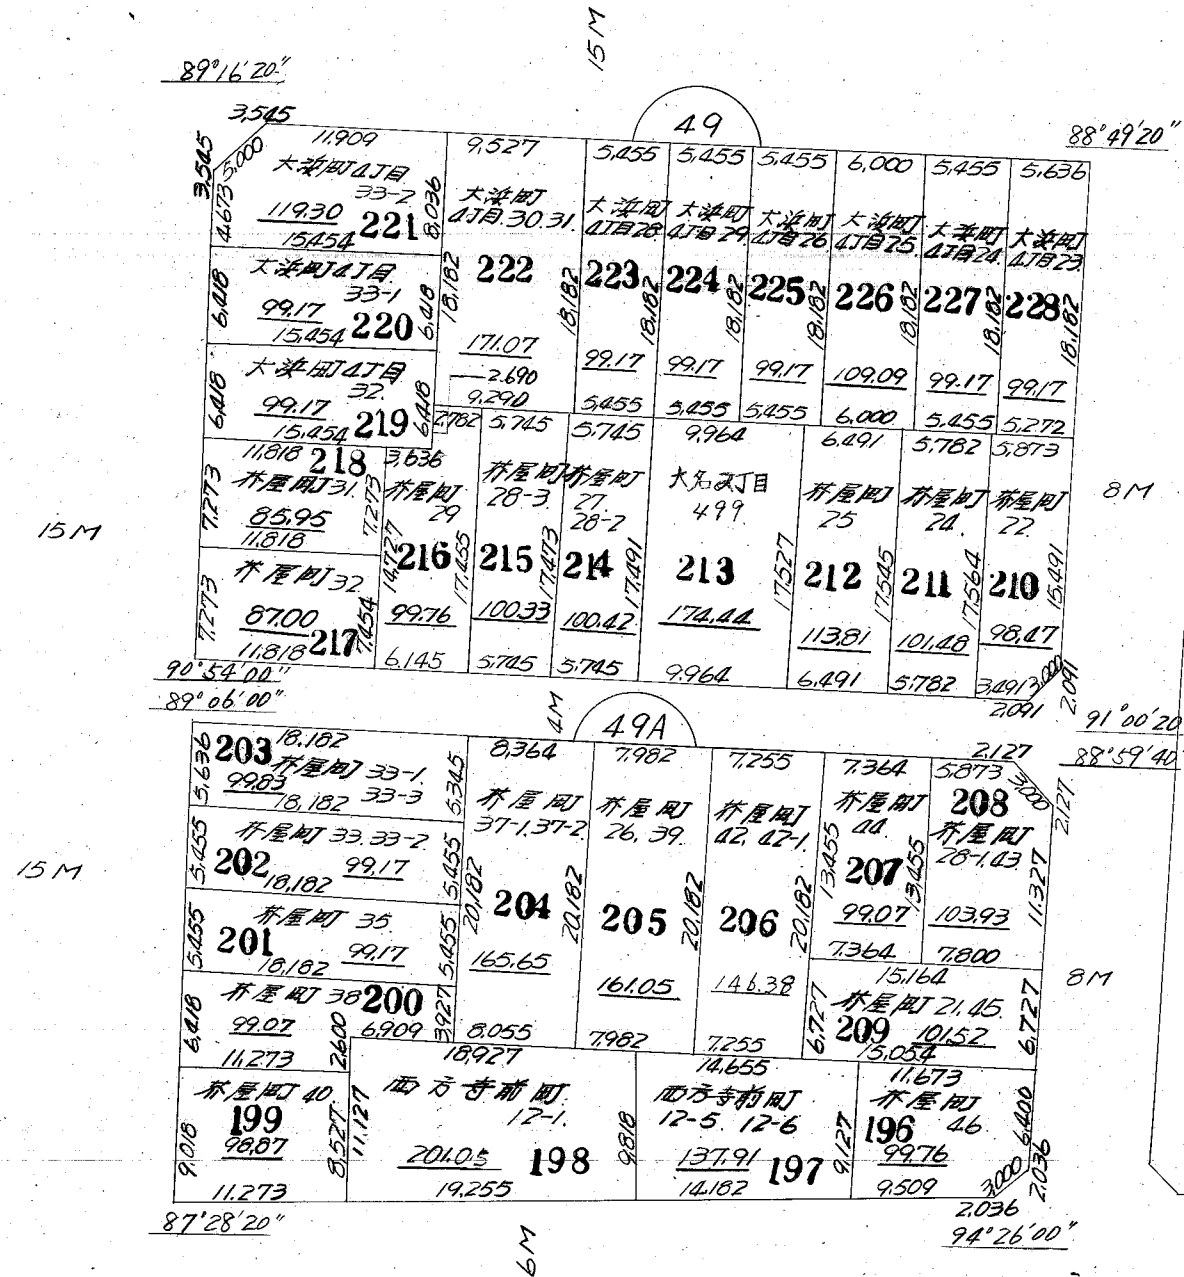 15M
89°16′20″
49
88°49′20″
3,545
3,545
5,000
11.909
大浜町4丁目
33-2
4.673
119.30
221
8,036
15.454
大浜町4丁目
33-1
6,418
99.17
220
6,418
15,454
大浜町4丁目
32.
6,418
99.17
219
6,418
15,454
9,527
大浜町
4丁目.30.31.
222
18,182
171.07
2.690
9,290
5,455
大浜町
4丁目28
223
18,182
99.17
5,455
5,455
大浜町
4丁目29
224
18,182
99.17
5,455
5,455
大浜町
4丁目26
225
18,182
99.17
5,455
6,000
大浜町
4丁目25
226
18,182
109.09
6,000
5,455
大浜町
4丁目24
227
18,182
99.17
5,455
5,636
大浜町
4丁目23
228
18,182
99.17
5,272
15M
8M
11,818
218
芥屋町31.
7,273
7,273
85.95
11,818
芥屋町32
7,273
87.00
217
7,454
11,818
2,782
3,636
芥屋町
29
14,727
216
17,455
99.76
6,145
5,745
芥屋町
28-3
215
17,473
100.33
5,745
5,745
芥屋町
27.
28-2
214
17,491
100.42
5,745
9,964
大名2丁目
499
213
17,527
174.44
9,964
6,491
芥屋町
25
212
17,545
113.81
6,491
5,782
芥屋町
24.
211
17,564
101.48
5,782
5,873
芥屋町
22.
210
15,491
98.47
3,491
3,000
2,091
2,091
90°54′00″
89°06′00″
4M
49A
91°00′20
88°59′40
203
18,182
芥屋町 33-1.
33-3
5,636
99.83
18,182
5,345
芥屋町 33.33-2
5,455
202
99.17
18,182
5,455
芥屋町 35
5,455
201
99.17
18,182
5,455
芥屋町 38
200
6,418
99.07
2,600
6,909
3,927
11,273
芥屋町 40
199
9,018
98.87
8,527
11,273
15M
8,364
芥屋町
37-1.37-2
20,182
204
20,182
165.65
8,055
7,982
芥屋町
26, 39.
205
20,182
161.05
7,982
7,255
芥屋町
42, 42-1.
206
20,182
146.38
7,255
7,364
芥屋町
44.
13,455
207
13,455
99.07
7,364
2,127
5,873
3,000
2,127
208
芥屋町
28-1,43.
11,327
103.93
7,800
15,164
芥屋町 21.45.
6,727
209
101.52
6,727
15,054
8M
18,927
西方寺前町
12-1.
11,127
201.05
198
9,818
19,255
14,655
西方寺前町
12-5. 12-6
137.91
197
9,127
14,182
11,673
芥屋町
46.
196
99.76
6,400
9,509
3,000
2,036
2,036
87°28′20″
6M
94°26′00″